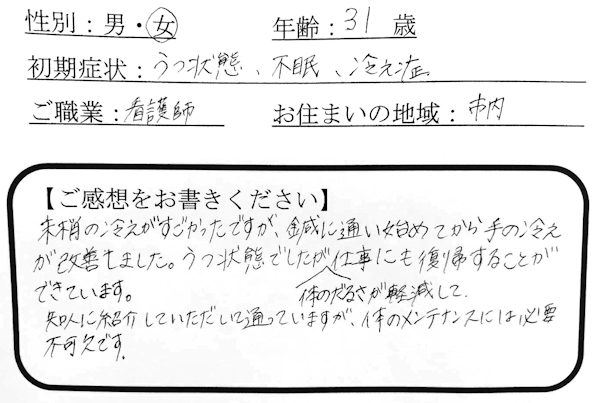 性別：男・女 年齢：31 歳
初期症状：うつ状態、不眠、冷え症
ご職業：看護師 お住まいの地域：市内
【ご感想をお書きください】
末梢の冷えがすごかったですが、鍼に通い始めてから手の冷え
が改善しました。うつ状態でしたが仕事にも復帰することが
できています。 体のだるさが軽減して、
知人に紹介していただいて通っていますが、体のメンテナンスには必要
不可欠です。